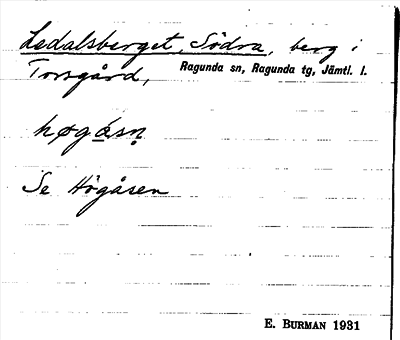 Ledalsberget, Södra, berg i
Torsgård, Ragunda sn, Ragunda tg, Jämtl. l.
høgásn̥
Se Högåsen
E. BURMAN 1931